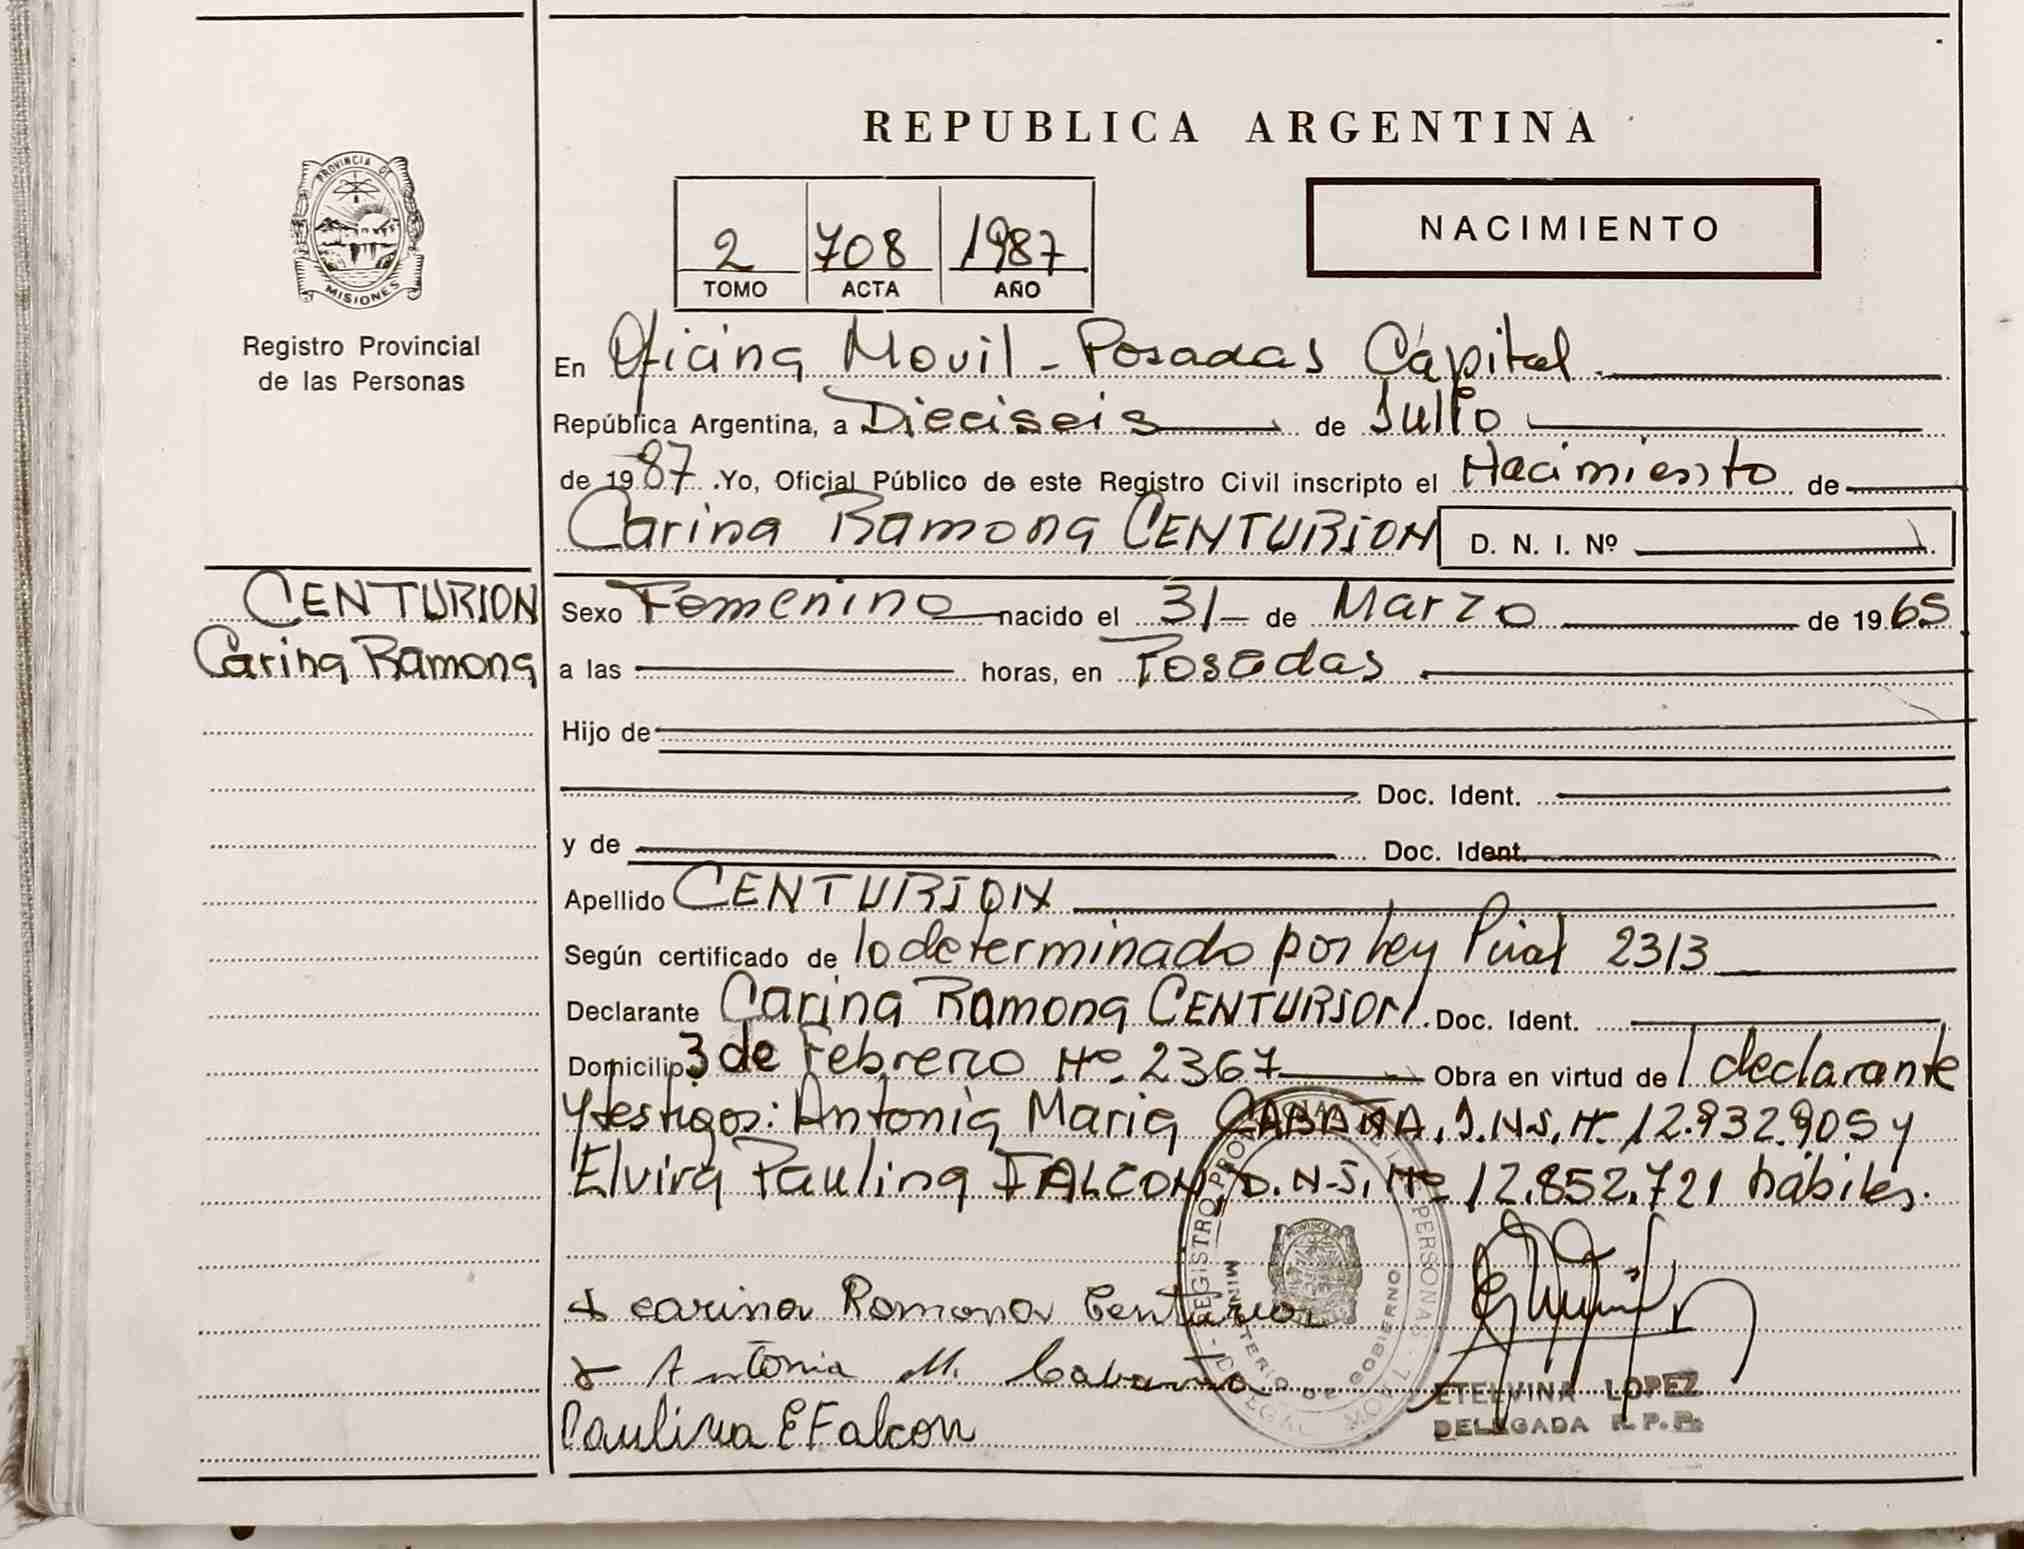 REPUBLICA ARGENTINA
PROVINCIA DE
MISIONES
Registro Provincial
de las Personas
2 708 1987
TOMO ACTA AÑO
NACIMIENTO
En Oficina Movil - Posadas Capital
República Argentina, a Dieciseis de Julio
de 1987. Yo, Oficial Público de este Registro Civil inscripto el Nacimiento de
Carina Ramona CENTURION D. N. I. Nº
CENTURION
Carina Ramona
Sexo Femenino nacido el 31 - de Marzo de 1965
a las horas, en Posadas
Hijo de
Doc. Ident.
y de Doc. Ident.
Apellido CENTURION
Según certificado de lo determinado por Ley Pcial 2313
Declarante Carina Ramona CENTURION. Doc. Ident.
Domicilio 3 de Febrero Nº 2367 Obra en virtud de 1 declarante
y testigos: Antonia Maria CABAÑA, D.N.I. Nº 12.932.905 y
Elvira Paulina FALCON, D.N.I. Nº 12.852.721 hábiles.
carina Ramona Centurion
Antonia M. Cabaña
Paulina E Falcon
MINISTERIO DE GOBIERNO
ETELVINA LOPEZ
DELEGADA R.P.P.